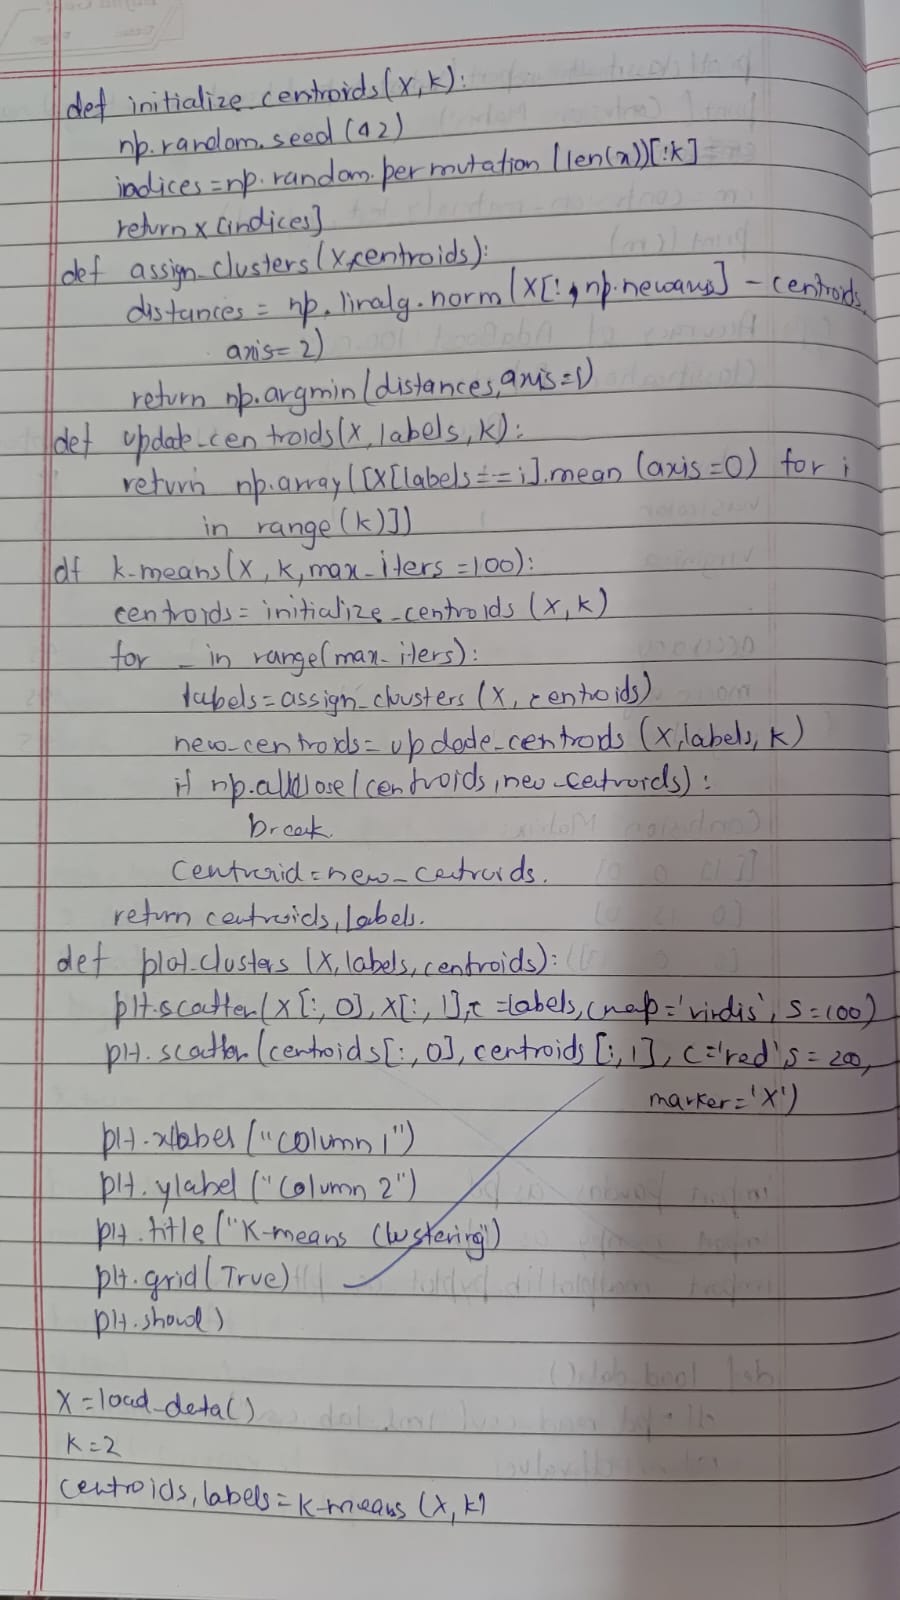 def initialize_centroids(X,k):
np.random.seed(42)
indices=np.random.permutation(len(x))[:k]
return x[indices]
def assign_clusters(X,centroids):
distances = np.linalg.norm(X[:,np.newaxis] - centroids,
axis=2)
return np.argmin(distances,axis=1)
def update_centroids(X,labels,k):
return np.array([X[labels==i].mean(axis=0) for i
in range(k)])
df k-means(X,k,max_iters=100):
centroids=initialize_centroids(X,k)
for _ in range(max_iters):
labels=assign_clusters(X,centroids)
new_centroids=update_centrods(X,labels,k)
if np.allclose(centroids,new_centroids):
break.
Centroid=new_centroids.
return centroids,labels.
def plot_clusters(X,labels,centroids):
plt.scatter(X[:,0],X[:,1],c=labels,cmap='virdis',s=100)
plt.scatter(centroids[:,0],centroids[:,1],c='red's=200,
marker='X')
plt.xlabel("column1")
plt.ylabel("Column 2")
plt.title("K-means Clustering")
plt.grid(True)
plt.show()
X=load_deta()
k=2
centroids,labels=k-means(X,k)